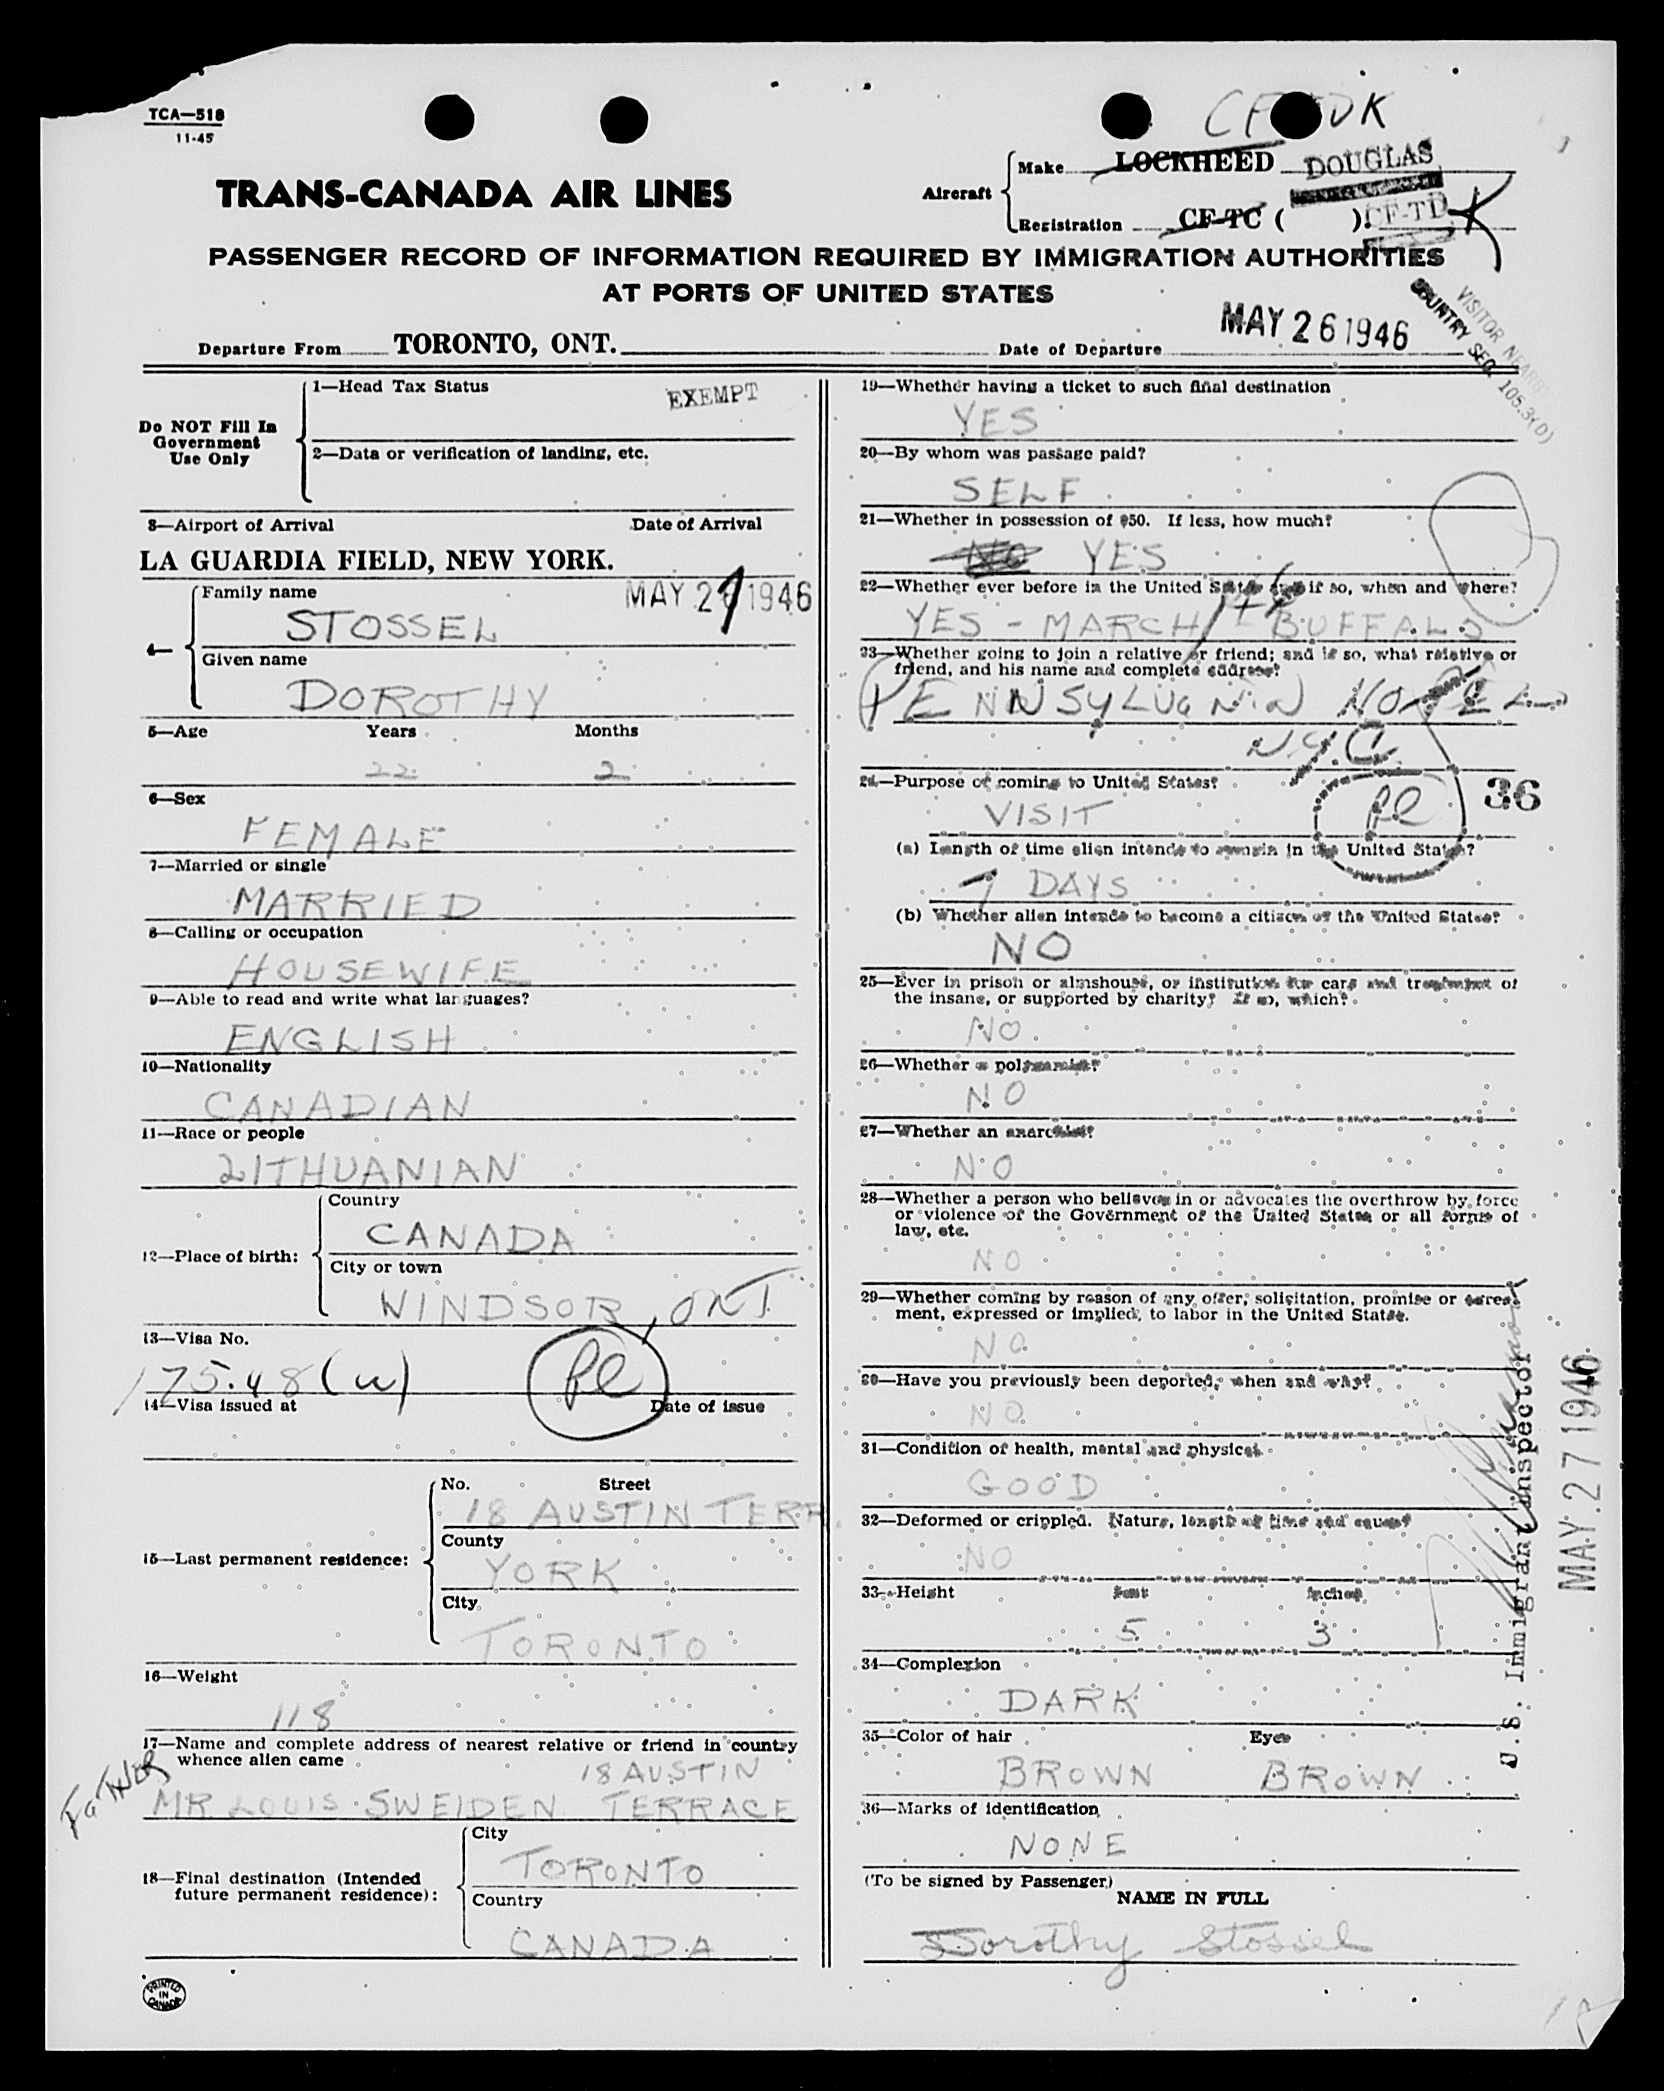 TCA—518
11-45
CF DK
TRANS-CANADA AIR LINES
Aircraft
Make LOCKHEED DOUGLAS
Registration CF-TC ( ). CF-TD K
PASSENGER RECORD OF INFORMATION REQUIRED BY IMMIGRATION AUTHORITIES
AT PORTS OF UNITED STATES
VISITOR
COUNTRY SEC. 105.3(D)
Departure From TORONTO, ONT. Date of Departure MAY 26 1946
Do NOT Fill In
Government
Use Only
1—Head Tax Status EXEMPT
2—Data or verification of landing, etc.
3—Airport of Arrival Date of Arrival
LA GUARDIA FIELD, NEW YORK.
MAY 27 1946
4—
Family name
STOSSEL
Given name
DOROTHY
5—Age Years Months
22 2
6—Sex
FEMALE
7—Married or single
MARRIED
8—Calling or occupation
HOUSEWIFE
9—Able to read and write what languages?
ENGLISH
10—Nationality
CANADIAN
11—Race or people
LITHUANIAN
12—Place of birth:
Country
CANADA
City or town
WINDSOR, ONT
13—Visa No.
175.48 (w)
14—Visa issued at Date of issue
15—Last permanent residence:
No. Street
18 AUSTIN TERR
County
YORK
City
TORONTO
16—Weight
118
17—Name and complete address of nearest relative or friend in country
whence alien came
18 AUSTIN
FATHER
MR LOUIS SWEIDEN TERRACE
18—Final destination (Intended
future permanent residence):
City
TORONTO
Country
CANADA
PRINTED
IN
CANADA
19—Whether having a ticket to such final destination
YES
20—By whom was passage paid?
SELF
21—Whether in possession of $50. If less, how much?
NO YES
22—Whether ever before in the United States and if so, when and where?
YES - MARCH BUFFALO
23—Whether going to join a relative or friend; and if so, what relative or
friend, and his name and complete address?
PENNSYLVANIA HOTEL
N.Y.C.
24—Purpose of coming to United States?
VISIT
36
(a) Length of time alien intends to remain in the United States?
7 DAYS
(b) Whether alien intends to become a citizen of the United States?
NO
25—Ever in prison or almshouse, or institution for care and treatment of
the insane, or supported by charity? If so, which?
NO
26—Whether a polygamist?
NO
27—Whether an anarchist?
NO
28—Whether a person who believes in or advocates the overthrow by force
or violence of the Government of the United States or all forms of
law, etc.
NO
29—Whether coming by reason of any offer, solicitation, promise or agree-
ment, expressed or implied, to labor in the United States.
NO
30—Have you previously been deported, when and why?
NO
31—Condition of health, mental and physical
GOOD
32—Deformed or crippled. Nature, length of time and cause?
NO
33—Height Feet Inches
5 3
34—Complexion
DARK
35—Color of hair Eyes
BROWN BROWN
36—Marks of identification
NONE
(To be signed by Passenger)
NAME IN FULL
Dorothy Stossel
U.S. Immigrant Inspector
MAY 27 1946